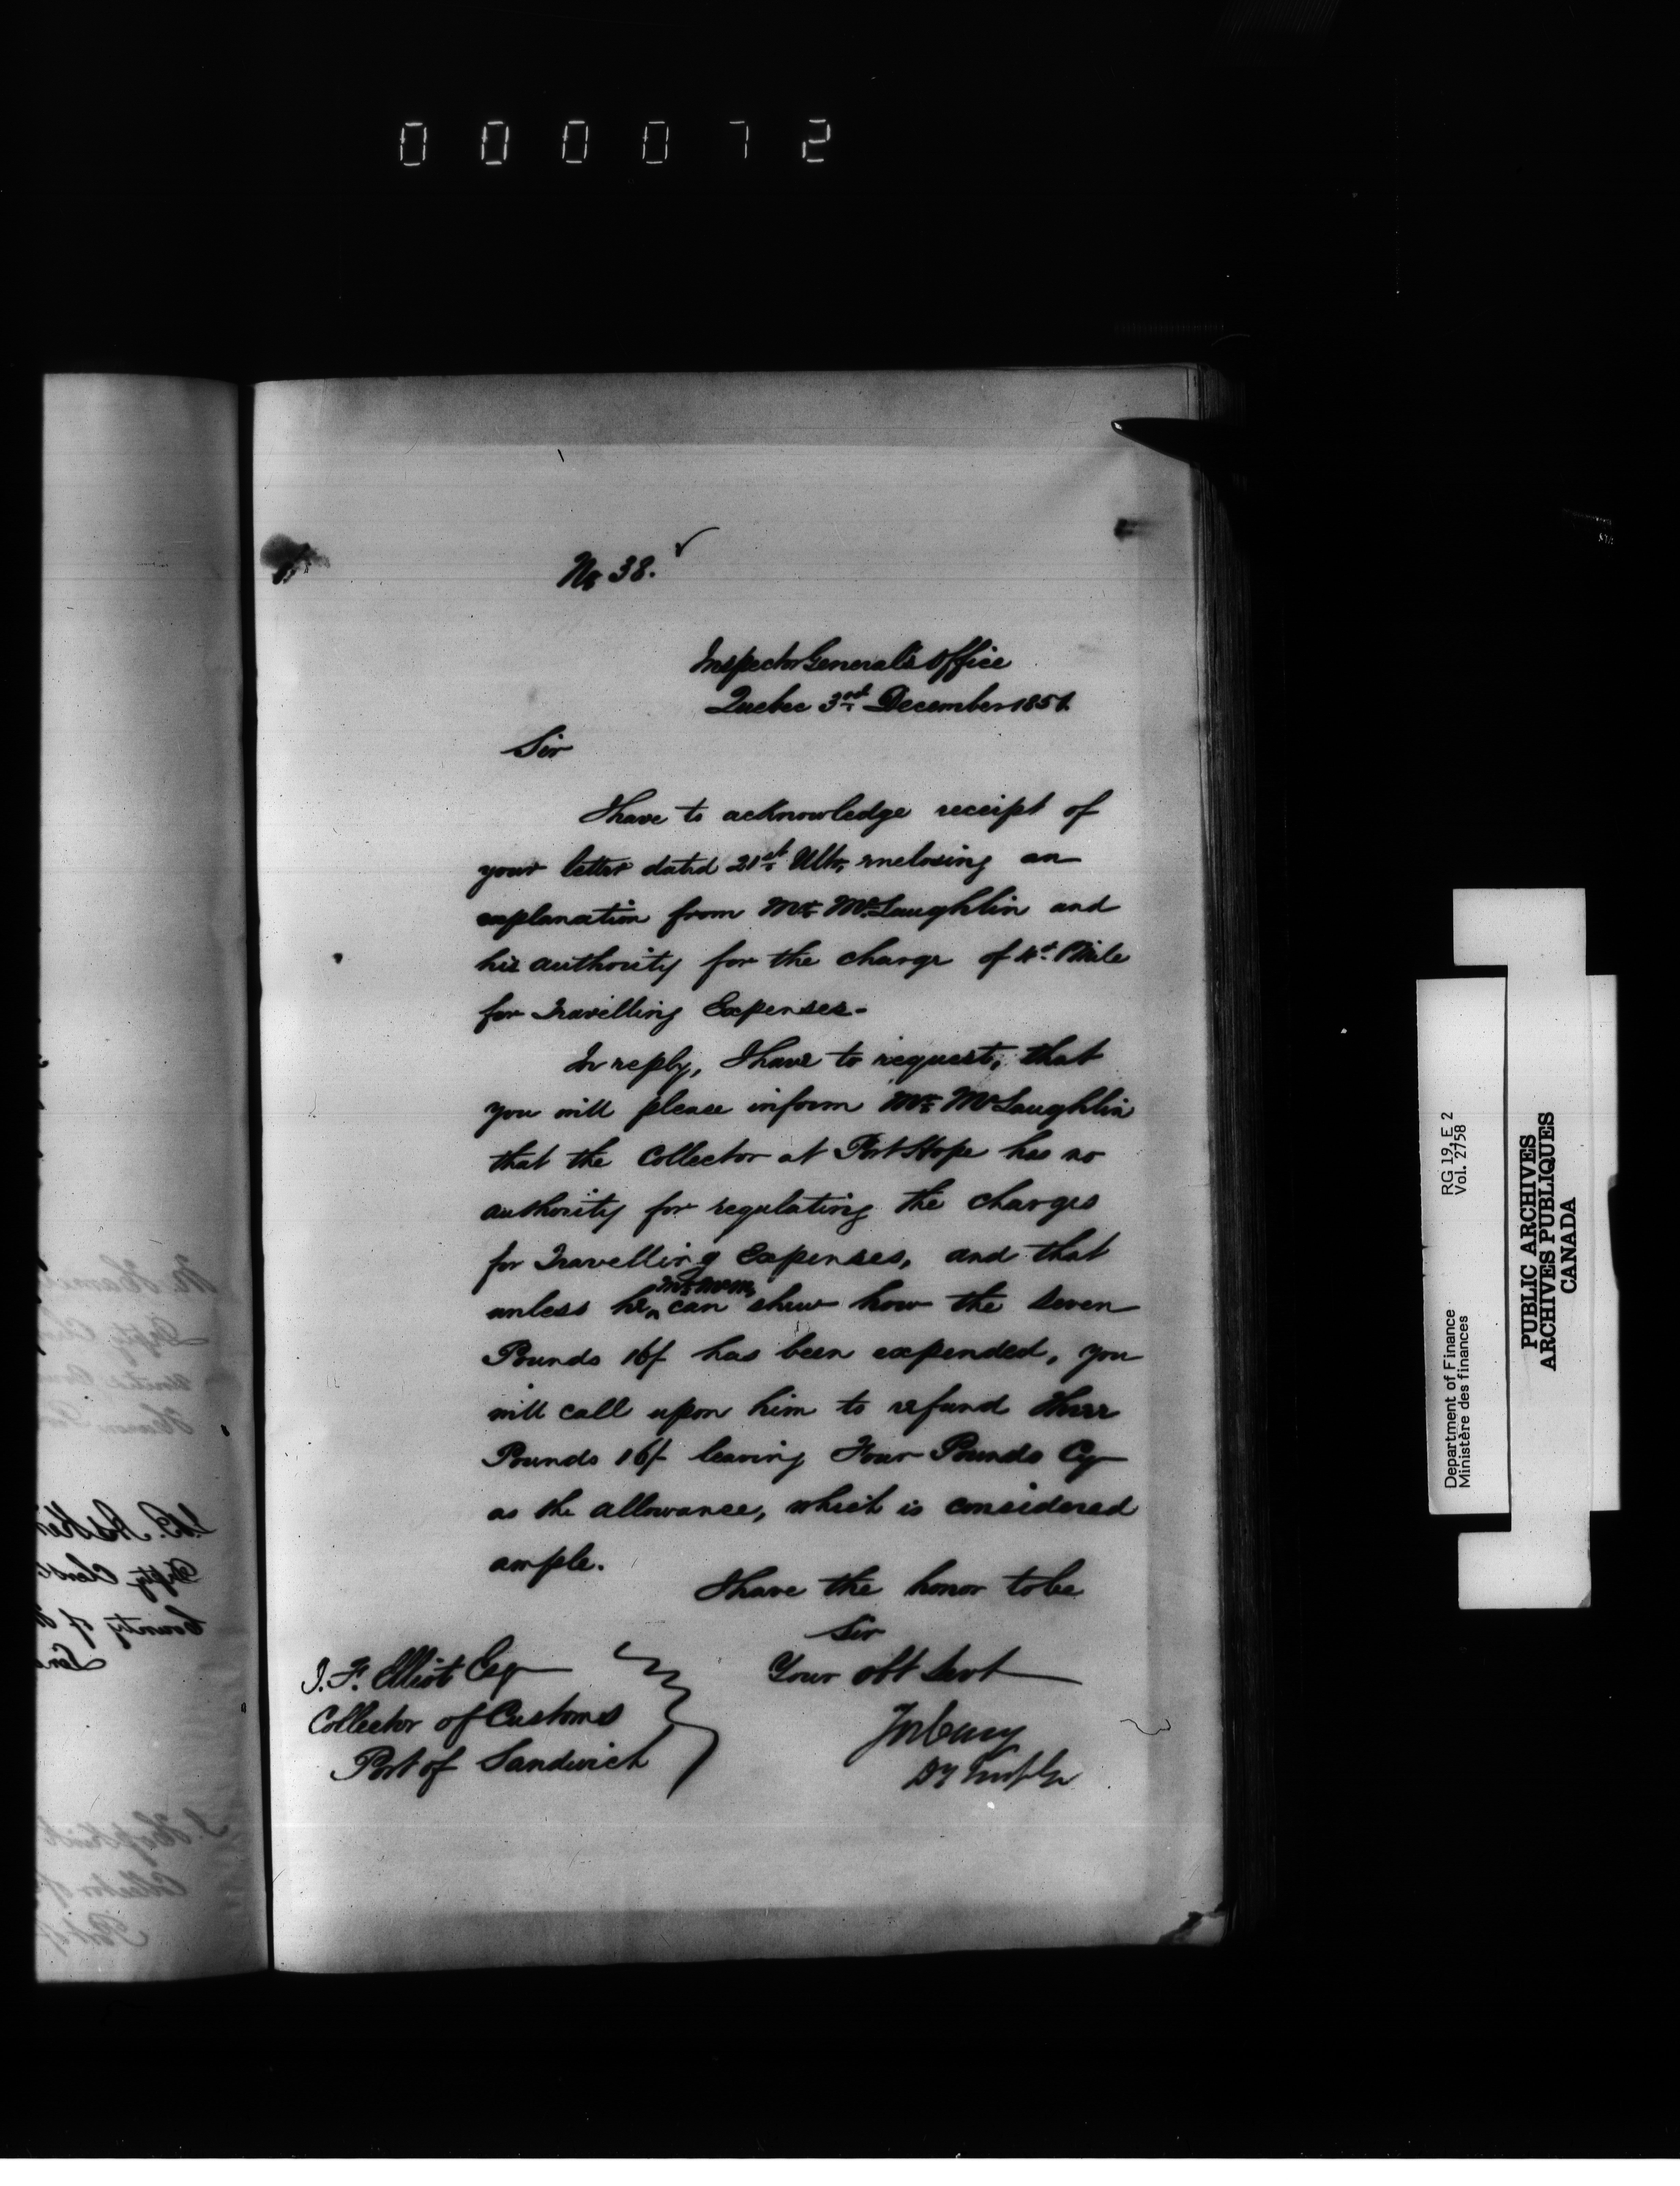 000072
No 38.
Inspector General's Office
Quebec 3rd December 1851.
Sir
I have to acknowledge receipt of
your letter dated 21st Ulto, enclosing an
explanation from Mr McLaughlin and
his authority for the charge of Mile
for Travelling Expenses.-
In reply, I have to request, that
you will please inform Mr McLaughlin
that the Collector at Port Hope has no
authority for regulating the charges
for Travelling Expenses, and that
unless he can shew how the Seven
Pounds 16/ has been expended, you
will call upon him to refund three
Pounds 16/- leaving Four Pounds Cy
as the allowance, which is considered
ample.
I have the honor to be
Sir
Your obt Servt
J. F. Elliot Esq
Collector of Customs
Port of Sandwich
Jos Cary
DY
Department of Finance RG 19, E 2
Ministère des finances Vol. 2758
PUBLIC ARCHIVES
ARCHIVES PUBLIQUES
CANADA